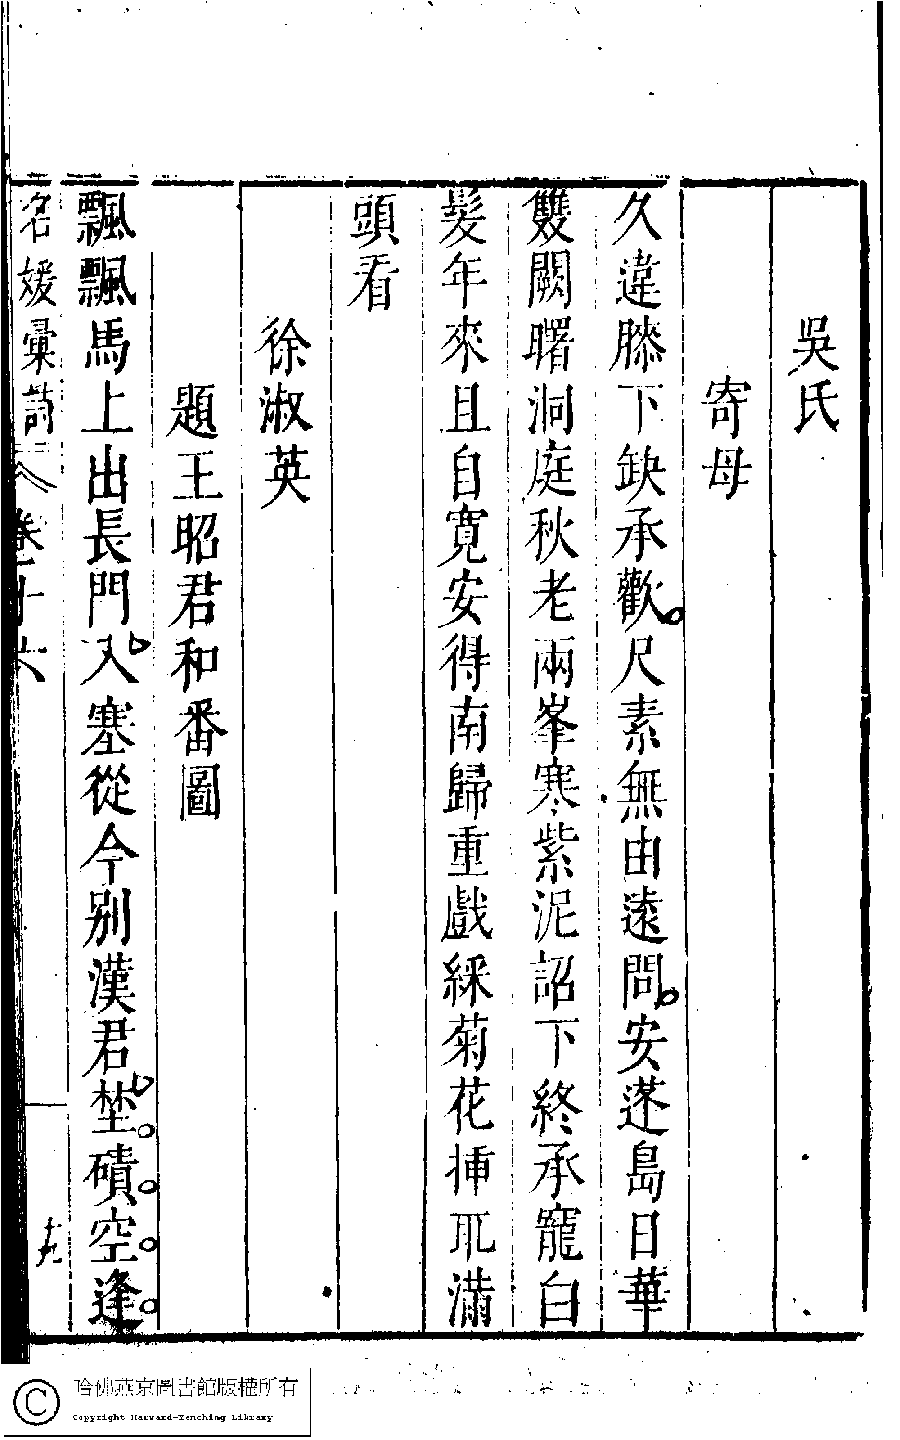 吳氏
寄母
久違膝下缺承歡尺素無由遠問安蓬島日華
雙闕曙洞庭秋老兩峯寒紫泥詔下終承寵白
髮年來且自寬安得南歸重戲綵菊花揷㞋滿
頭看
徐淑英
題王昭君和番圖
飄飄馬上出長門入塞從今别漢君埜磧空逢
名媛彙詩 卷十六 十九
哈佛燕京圖書館版權所有
Copyright Harvard-Yenching Library